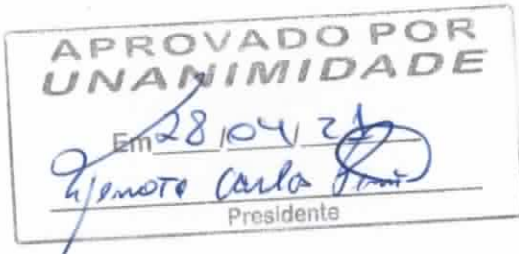 APROVADO POR
UNANIMIDADE
Em 28/04/21
Carlos
Presidente